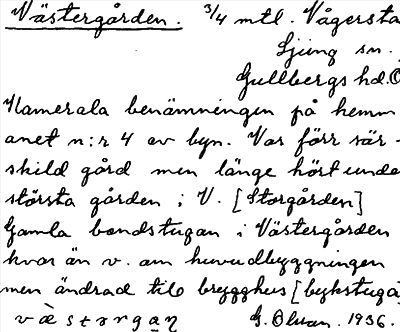 Västergården. 3/4 mtl. Vågersta
Ljung sn.
Gullbergs hd. Ö
Kamerala benämningen på hemm
anet n:r 4 av byn. Var förr sär-
skild gård men länge hört unde
största gården i V. [Storgården]
Gamla bondstugan i Västergården
kvar än v. om huvudbyggningen
men ändrad till brygghus [bykstuga
G. Olson. 1936.